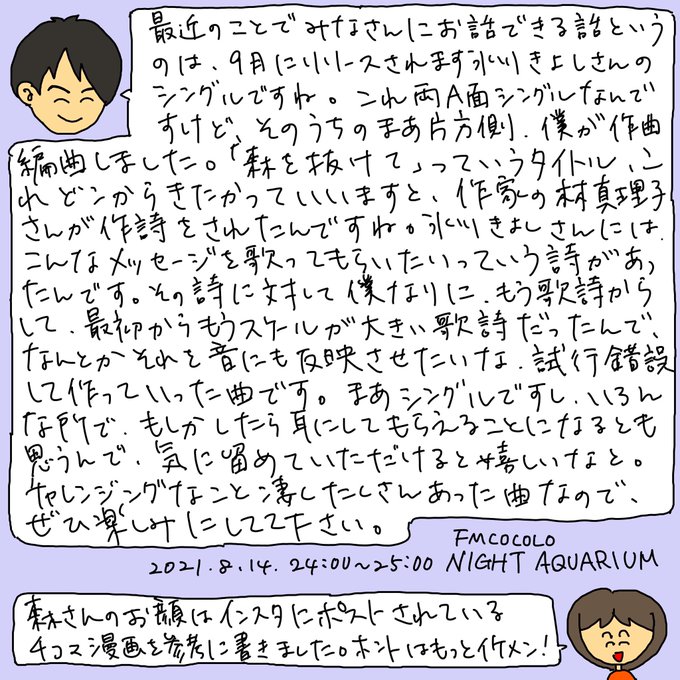 最近のことでみなさんにお話できる話という
のは、9月にリリースされます氷川きよしさんの
シングルですね。これ両A面シングルなんで
すけど、そのうちのまあ片方側、僕が作曲
編曲しました。「森を抜けて」っていうタイトル、こ
れどこからきたかっていいますと、作家の林真理子
さんが作詩をされたんですね。氷川きよしさんには、
こんなメッセージを歌ってもらいたいっていう詩があっ
たんです。その詩に対して僕なりに、もう歌詩から
して、最初からもうスケールが大きい歌詩だったんで、
なんとかそれを音にも反映させたいな、試行錯誤
して作っていった曲です。まあシングルですし、いろん
な所で、もしかしたら耳にしてもらえることになるとも
思うんで、気に留めていただけると嬉しいなと。
チャレンジングなこと凄したくさんあった曲なので、
ぜひ楽しみにしてください。
FMCOCOLO
2021.8.14. 24:00~25:00 NIGHT AQUARIUM
森さんのお顔はインスタにポストされている
4コマ漫画を参考に書きました。ホントはもっとイケメン!